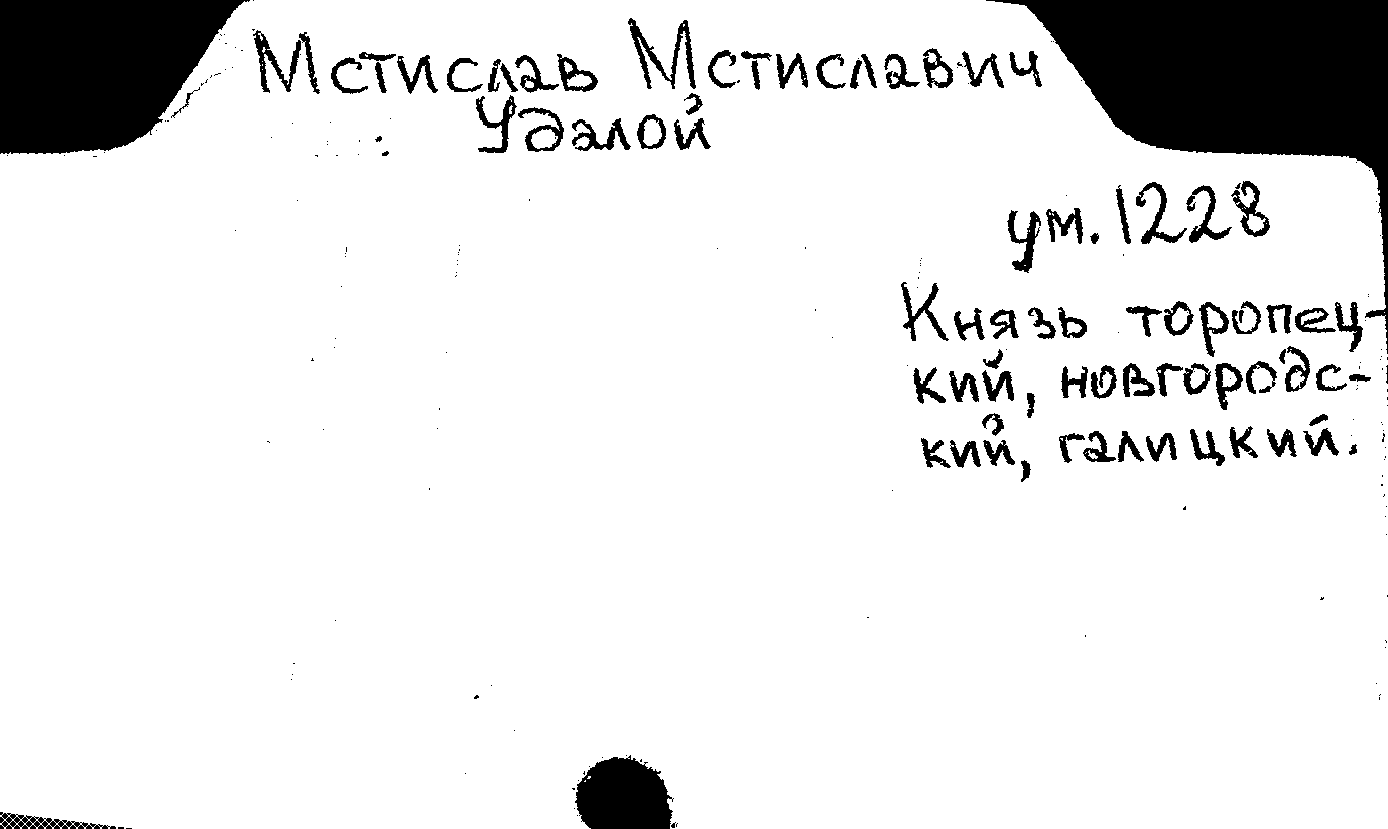 Мстислав Мстиславич
Удалой
ум. 1228
Князь торопец-
кий, новгородс-
кий, галицкий.